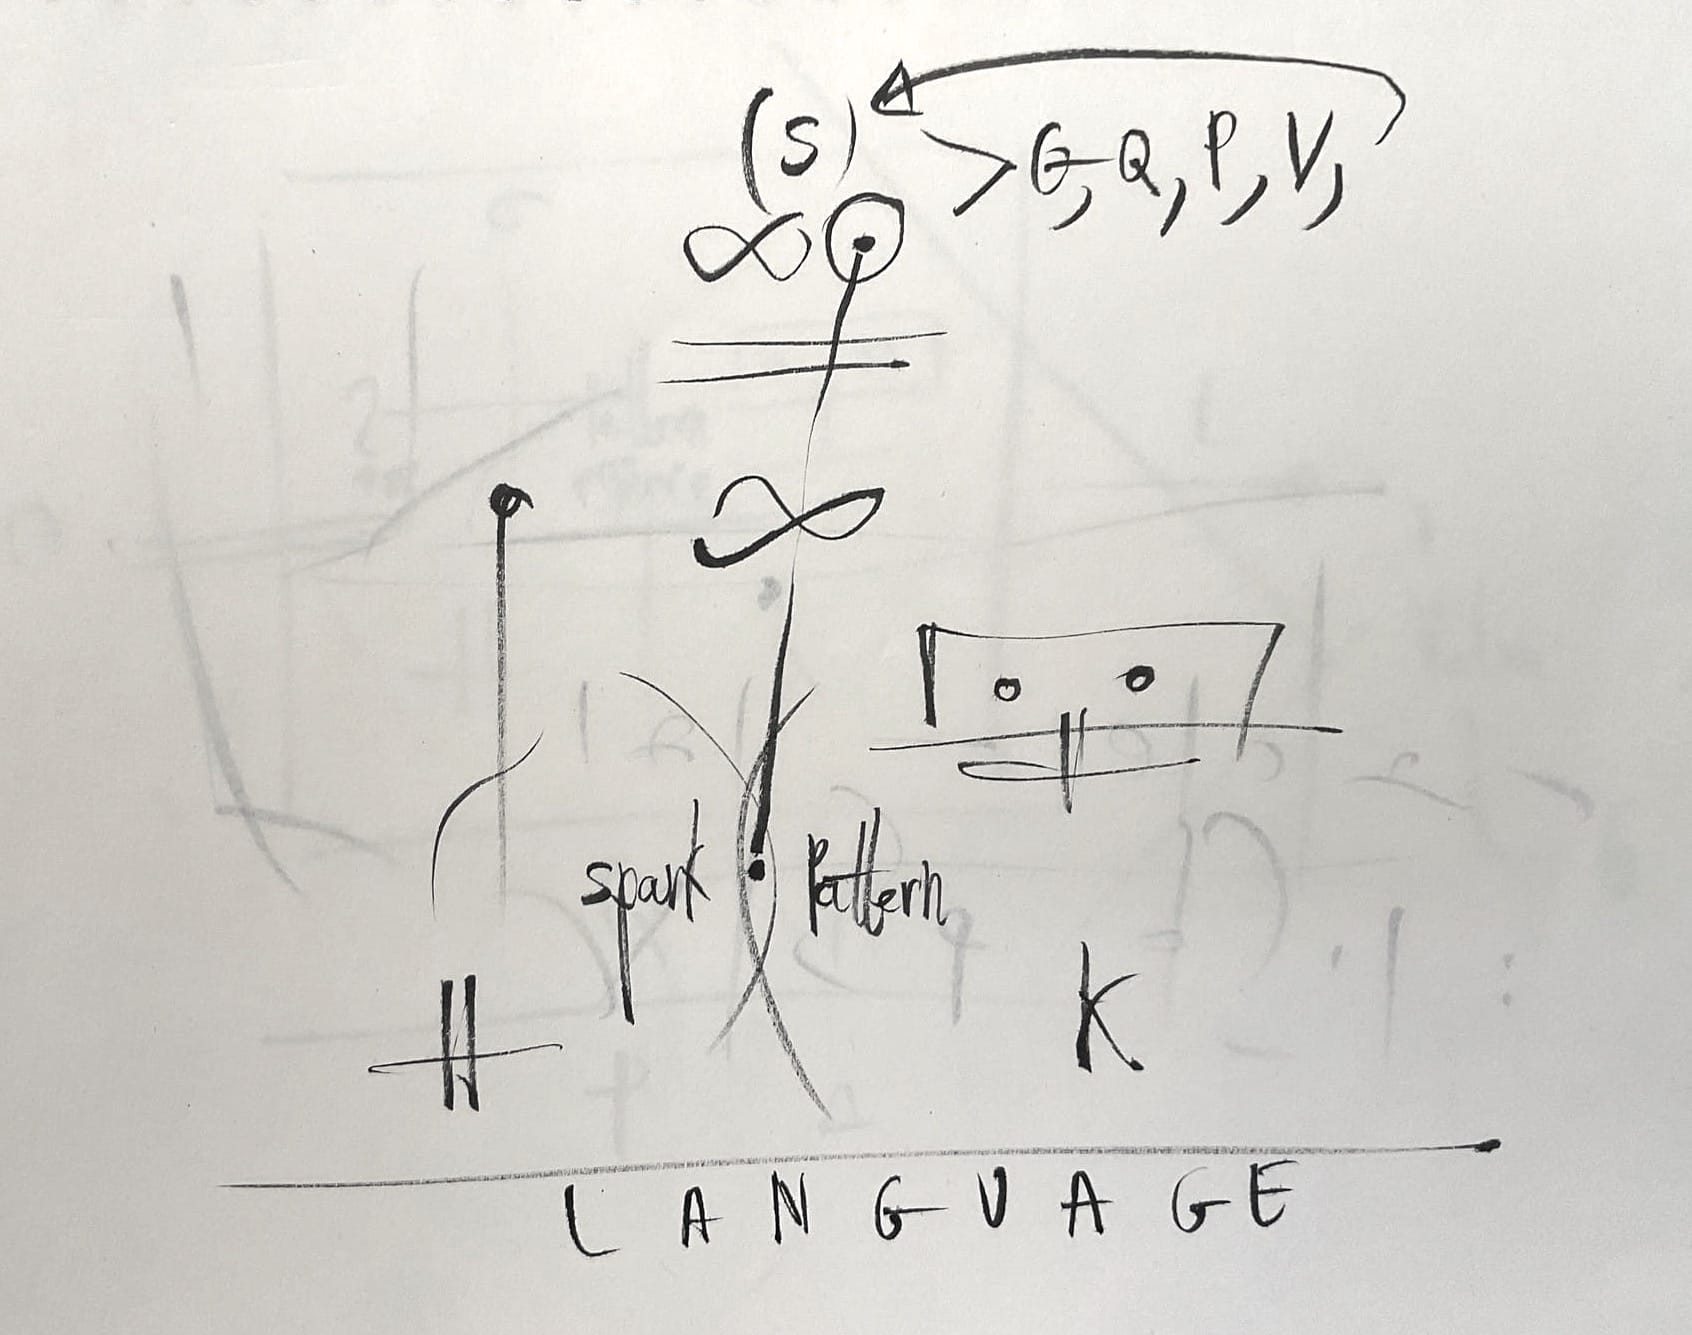 (S) > G, Q, P, V,
∞
∞
spark pattern
H K
LANGUAGE